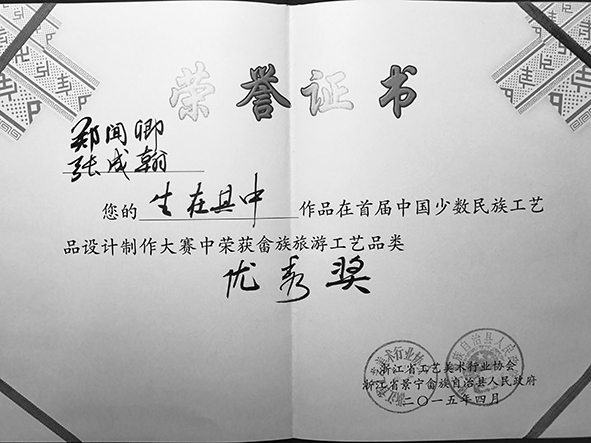 荣誉证书
郑闻卿
张成翰
您的 生在其中 作品在首届中国少数民族工艺
品设计制作大赛中荣获畲族旅游工艺品类
优秀奖
浙江省工艺美术行业协会
浙江省景宁畲族自治县人民政府
二〇一五年四月